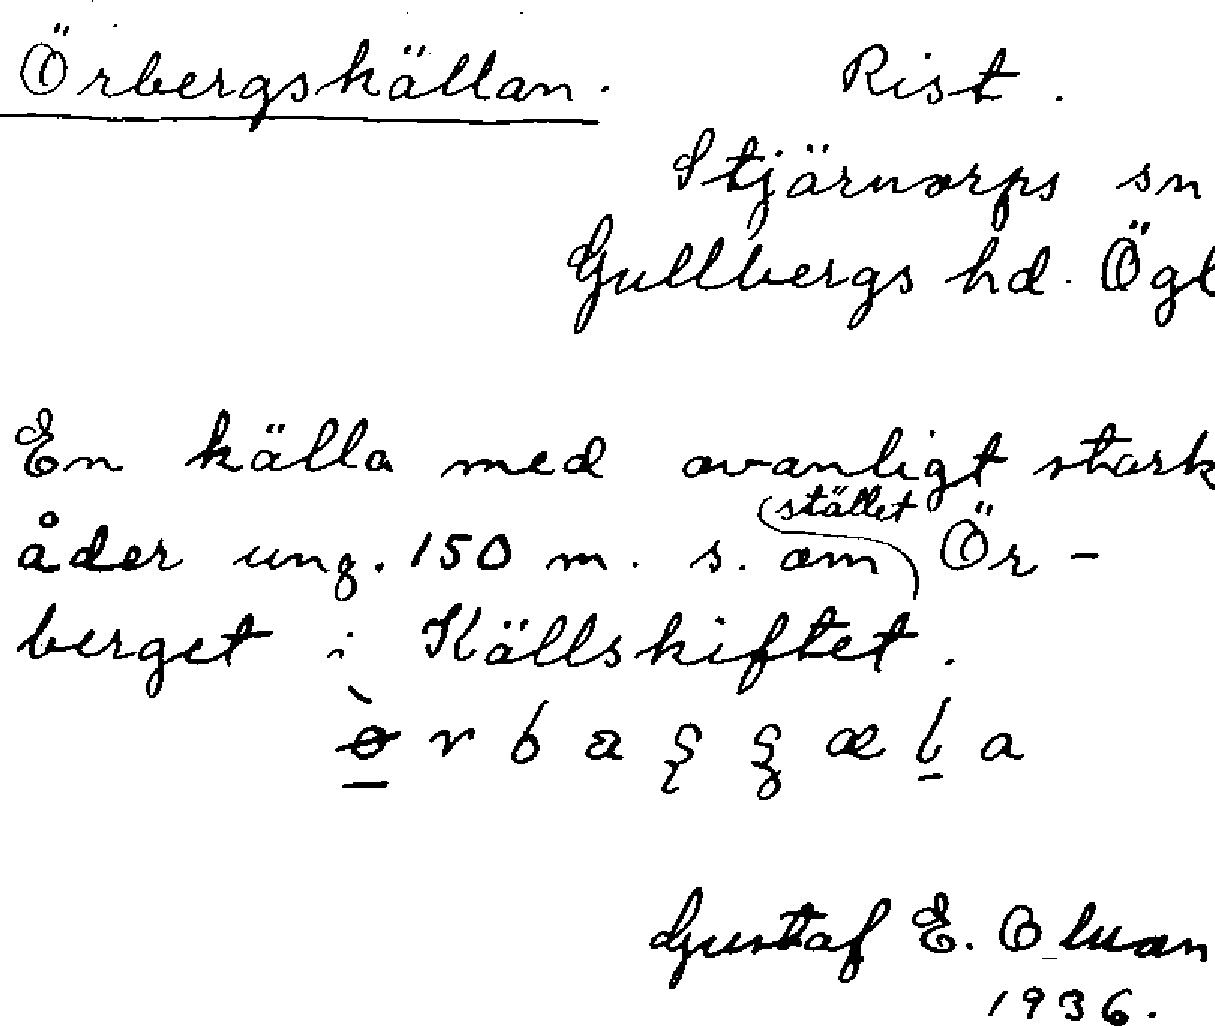 Örbergskällan. Rist.
Stjärnorps sn
Gullbergs hd. Ögl
En källa med ovanligt stark
stället
åder ung. 150 m. s. om Ör-
berget i Källskiftet.
Gustaf E.
1936.